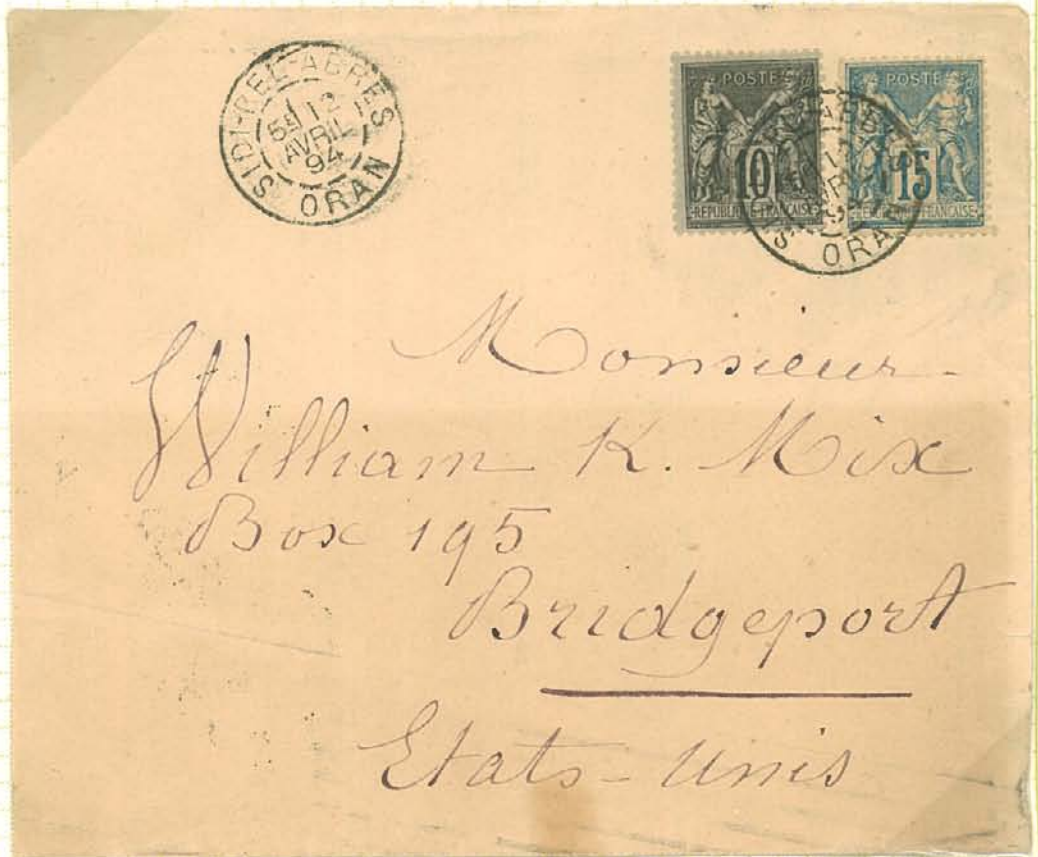 SIDI-BEL-ABBÈS
5E 12
AVRIL
94
ORAN
POSTE
10
REPUBLIQUE FRANÇAISE
POSTE
15
REPUBLIQUE FRANÇAISE
ORAN
Monsieur
William K. Mix
Box 195
Bridgeport
Etats-Unis